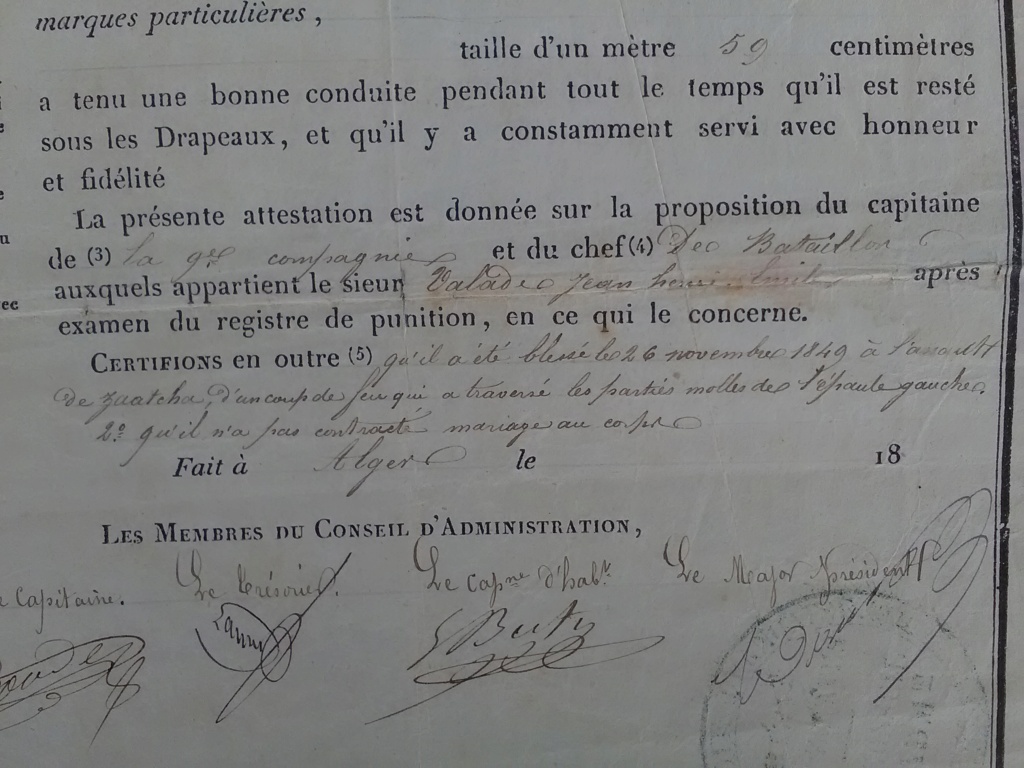 marques particulières,
taille d'un mètre 59 centimètres
a tenu une bonne conduite pendant tout le temps qu'il est resté
sous les Drapeaux, et qu'il y a constamment servi avec honneur
et fidélité
La présente attestation est donnée sur la proposition du capitaine
de (3) la compagnie et du chef (4) De Bataillon
auxquels appartient le sieur Valade Jean henri Emile après
examen du registre de punition, en ce qui le concerne.
CERTIFIONS en outre (5) qu'il a été blessé le 26 novembre 1849 à l'assaut
de zaatcha, d'un coup de feu qui a traversé les parties molles de l'épaule gauche.
2° qu'il n'a pas contracté mariage au corps
Fait à Alger le 18
LES MEMBRES DU CONSEIL D'ADMINISTRATION,
Capitaine. Le trésorier. Le Capne d'habt. Le Major président